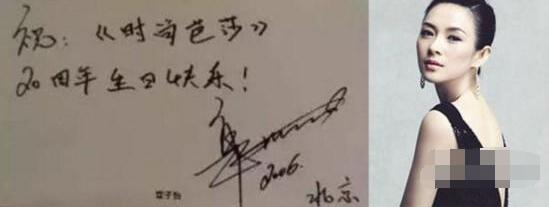 祝：《时尚芭莎》
20周年生日快乐！
章
2006.
章子怡
北京